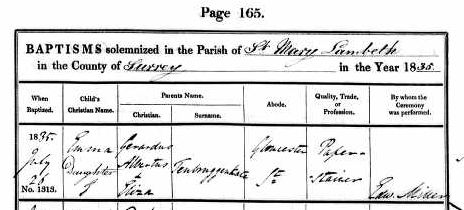 Page 165.
BAPTISMS solemnized in the Parish of St Mary Lambeth
in the County of Surrey in the Year 1835.
When Baptized. Child's Christian Name. Parents Name. Christian. Surname. Abode. Quality, Trade, or Profession. By whom the Ceremony was performed.
1835. Emma Gerardus Gloucester Paper
July Daughter Albertus Tenbruggenkate St Stainer
26 of & Eliza
No. 1313. Edw.